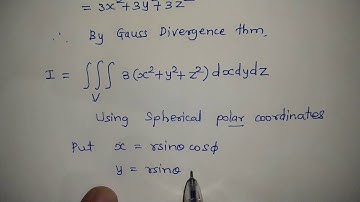 = 3x²+3y²+3z²
∴ By Gauss Divergence thm,
I = ∭ 3(x²+y²+z²) dxdydz
V
Using Spherical polar coordinates
Put x = rsinθ cosϕ
y = rsinθ